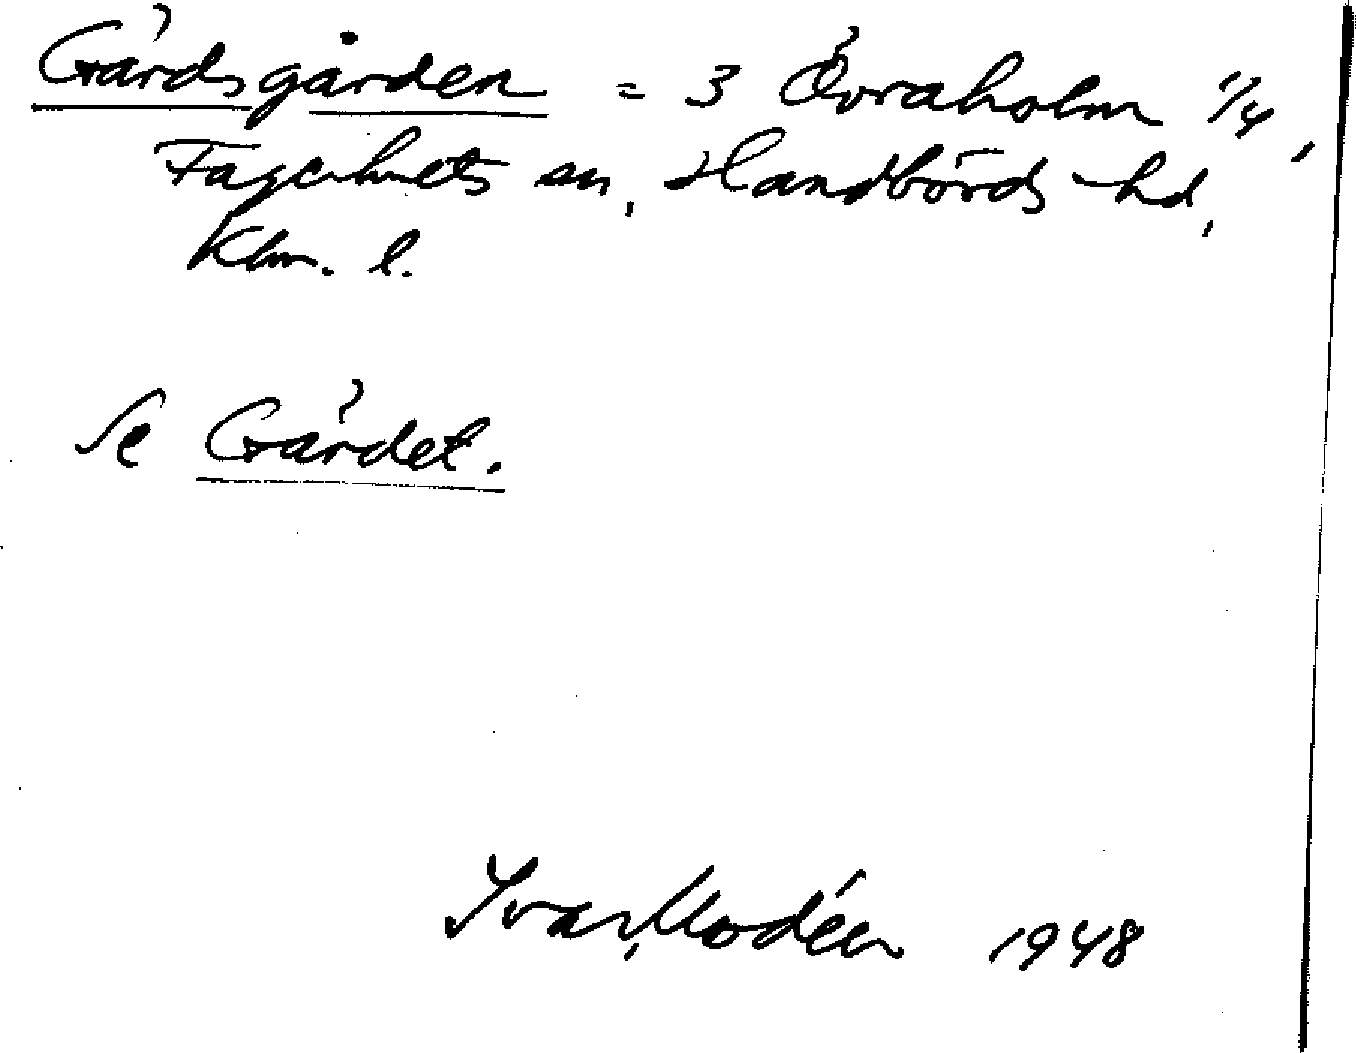 Gärdsgården = 3 Övraholm 1/4,
Fagerhults sn, Handbörds hd,
Klm. l.
Se Gärdet.
Ivar Modéer 1948